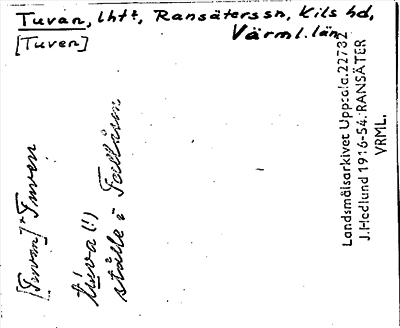 Tuvan, lht⁺, Ransäterssn, Kils hd,
[Tuven] Värml. län
[Tuvan]⁺ Tuven
tuva(!)
ställe i Tallåsen
Landsmålsarkivet Uppsala.22732
J.Hedlund 1916-54. RANSÄTER
VRML.